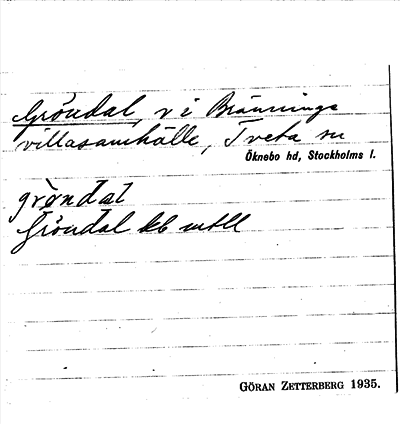 Gröndal, v i Bränninge
villasamhälle, Tveta sn
Öknebo hd, Stockholms l.
gròndal
Gröndal kb mtll
GÖRAN ZETTERBERG 1935.